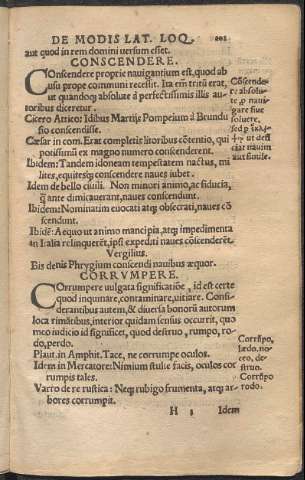 DE MODIS LAT. LOQ.
aut quod in rem domini versum esset.
CONSCENDERE.
COnscendere proprie nauigantium est, quod ab
usu prope communi recessit. Ita em̃ tritũ erat,
ut quandoq; absolute à perfectissimis illis au-
toribus diceretur.
Cicero Attico: Idibus Martijs Pompeium à Brundu
sio conscendisse.
Cæsar in com. Erat completis litoribus cõtentio, qui
potissimũ ex magno numero conscenderent.
Ibidem: Tandem idoneam tempestatem nactus, mi
lites, equitesq; conscendere naues iubet.
Idem de bello ciuili. Non minori animo, ac fiducia,
q̃ ante dimicauerant, naues conscendunt.
Ibidem: Nominatim euocati atq; obsecrati, naues cõ
scendunt.
Ibidẽ: Aequo ut animo mancipia, atq; impedimenta
in Italia relinquerẽt, ipsi expediti naues cõscenderẽt.
Vergilius.
Bis denis Phrygium conscendi nauibus æquor.
CORRVMPERE.
COrrumpere uulgata significatiõe, id est certe
quod inquinare, contaminare, uitiare. Consi-
derantibus autem, & diuersa bonorũ autorum
loca rimãtibus, interior quidam sensus occurrit, quo
meo iudicio id significet, quod destruo, rumpo, ro-
do, perdo.
Plaut. in Amphit. Tace, ne corrumpe oculos.
Idem in Mercatore: Nimium stulte facis, oculos cor
rumpis tales.
Varro de re rustica: Neq; rubigo frumenta, atq; ar-
bores corrumpit.
H 3 Idem
Cõscende
re absolu-
te p̱ naui-
gare siue
soluere,
cat nauim
aut soluit.
Corrũpo,
lædo, no-
ceo, de-
struo.
Corrũpo
rodo.